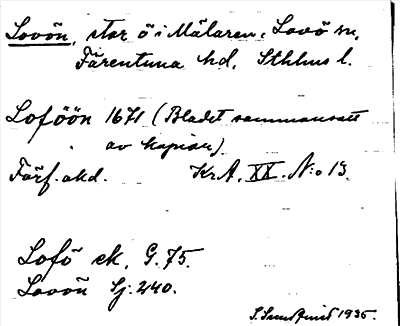 Lovön, stor ö i Mälaren, Lovö sn,
Färentuna hd, Sthlms l.
Loföön 1671 (Bladet sammansatt
av kopior)
Förf. okd. Kr.A. XX. N:o 13.
Lofö ek. G. 75.
Lovön Sj. 240.
S. Sundquist 1935.